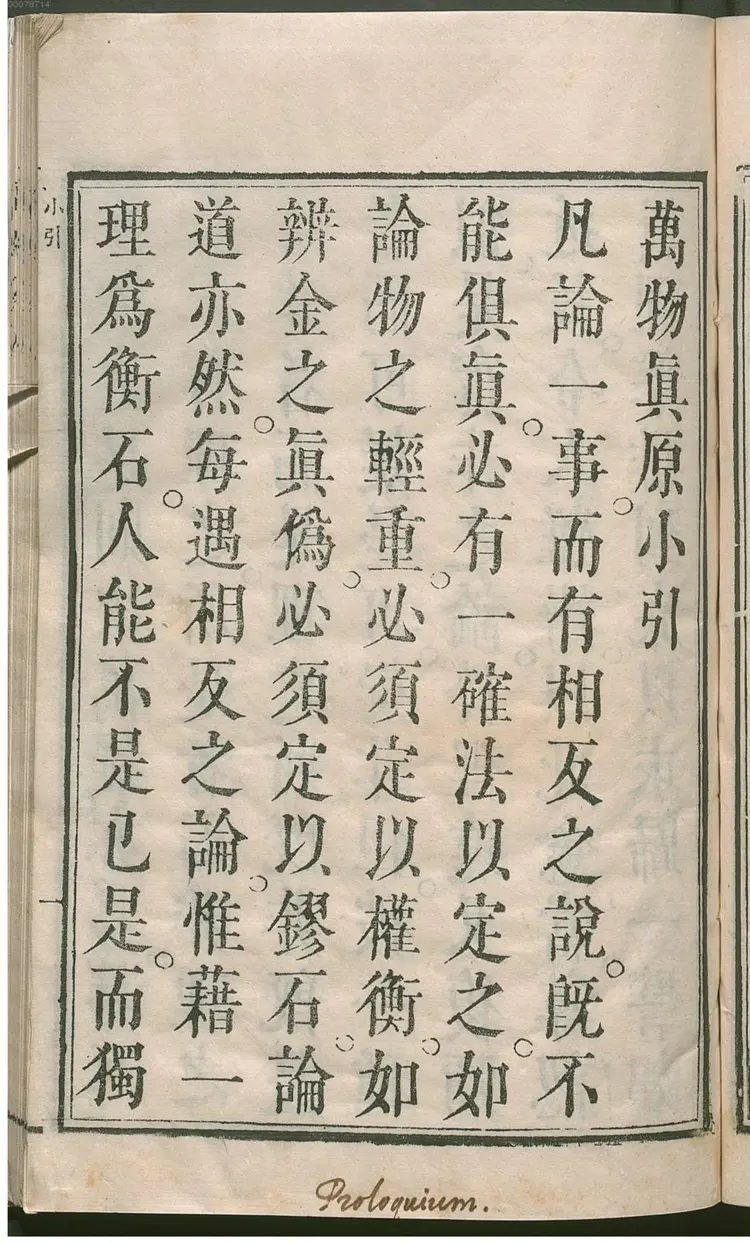 萬物眞原小引
凡論一事而有相反之說。旣不
能俱眞。必有一確法以定之。如
論物之輕重。必須定以權衡。如
辨金之眞僞。必須定以鏐石。論
道亦然。每遇相反之論。惟藉一
理爲衡石。人能不是已是。而獨
小引
Proloquium.
00078714